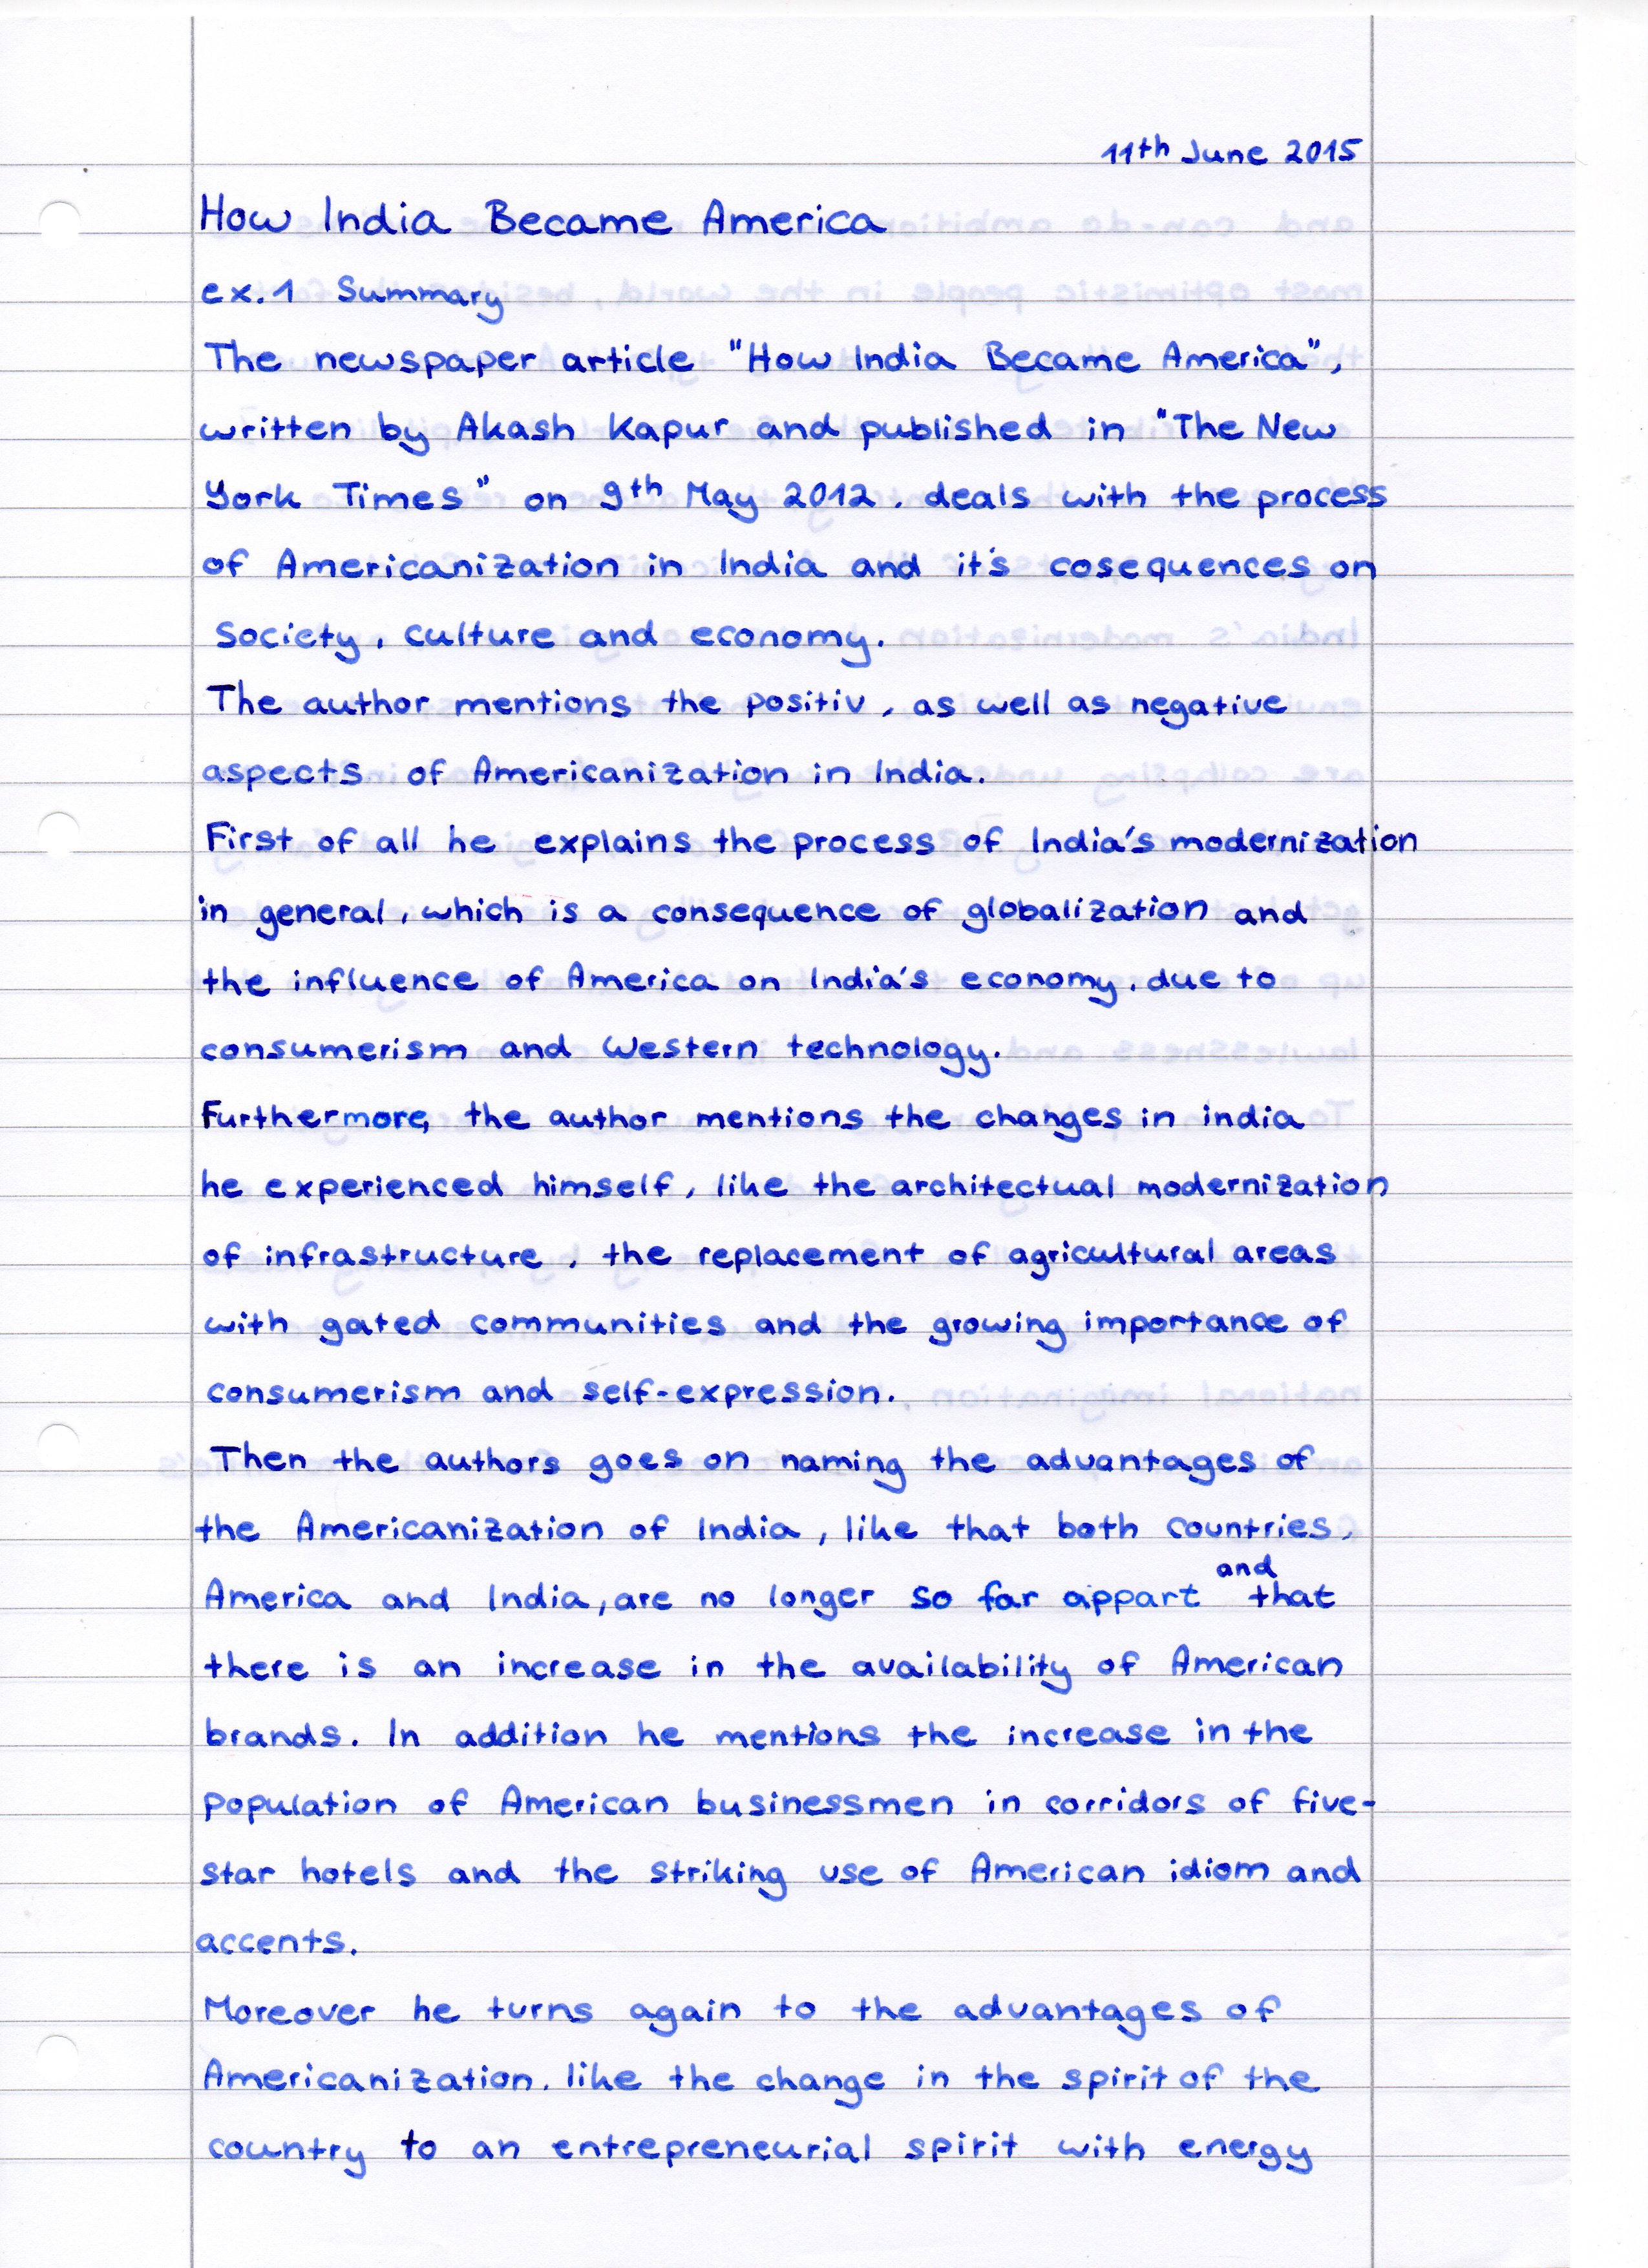 11th June 2015
How India Became America
ex.1 Summary
The newspaper article "How India Became America",
written by Akash Kapur and published in "The New
York Times" on 9th May 2012, deals with the process
of Americanization in India and it's cosequences on
society, culture and economy.
The author mentions the positiv, as well as negative
aspects of Americanization in India.
First of all he explains the process of India's modernization
in general, which is a consequence of globalization and
the influence of America on India's economy, due to
consumerism and Western technology.
Furthermore, the author mentions the changes in india
he experienced himself, like the architectual modernization
of infrastructure, the replacement of agricultural areas
with gated communities and the growing importance of
consumerism and self-expression.
Then the authors goes on naming the advantages of
the Americanization of India, like that both countries,
America and India, are no longer so far appart and that
there is an increase in the availability of American
brands. In addition he mentions the increase in the
population of American businessmen in corridors of five-
star hotels and the striking use of American idiom and
accents.
Moreover he turns again to the advantages of
Americanization, like the change in the spirit of the
country to an entrepreneurial spirit with energy